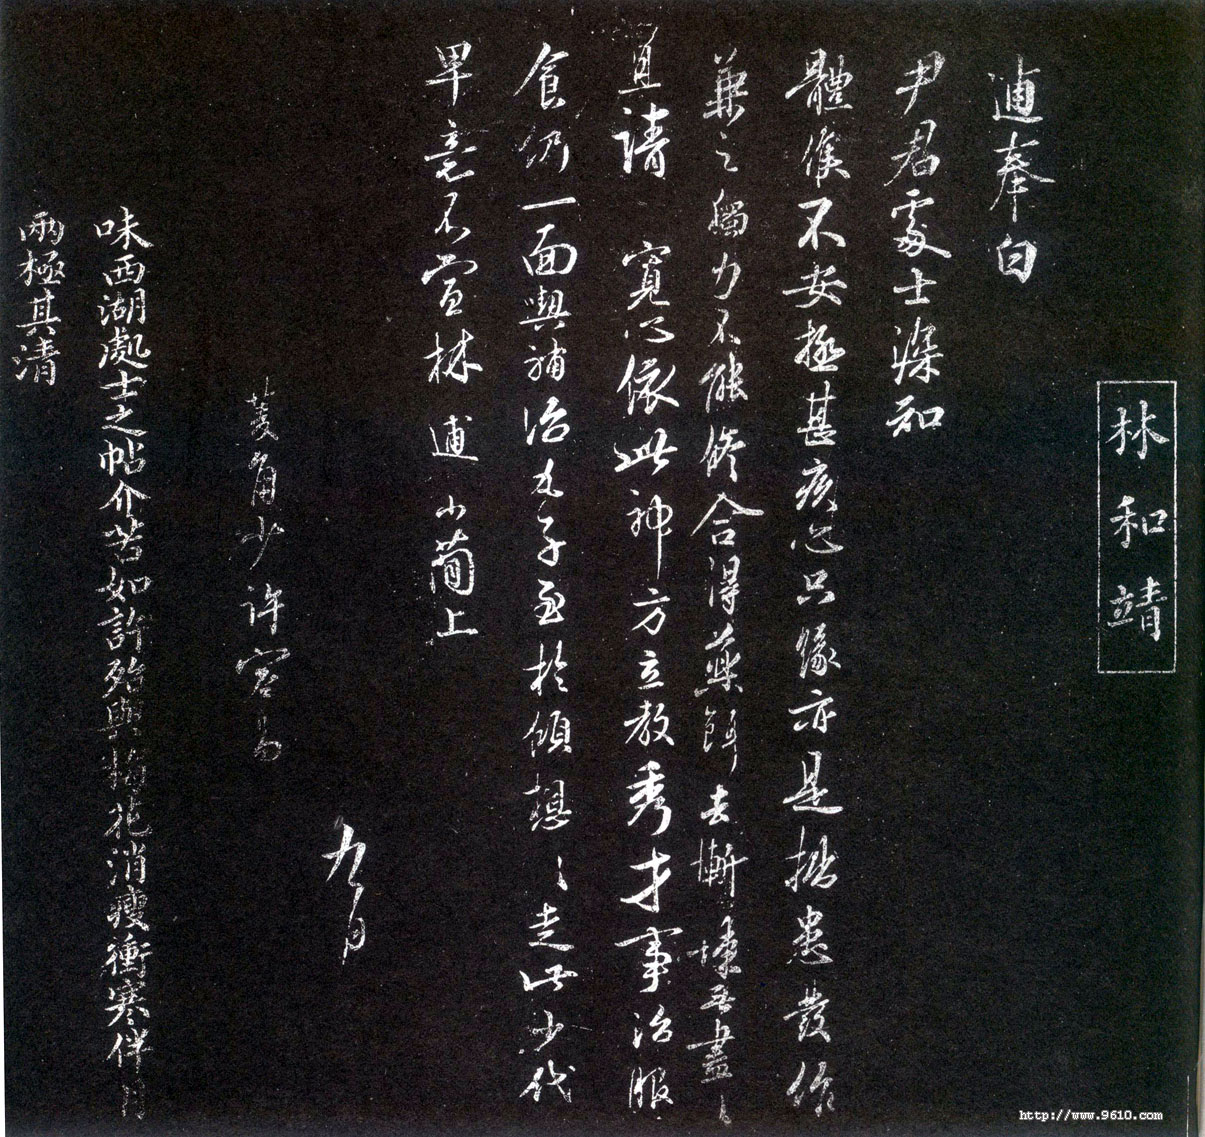 林和靖
逋奉白
尹君處士深知
體候不安極甚疾心只緣亦是拙患發作
兼之獨力不能修合得藥餌去慚悚無盡〻
且請 寬心依此神方立教秀才事治服
食仍一面與補治丸子至於傾想〻走此少代
卑意不宣林逋小簡上
九月
菱角少許容易
味西湖處士之帖介苦如許殆與梅花消瘦衝寒伴月
兩極其清
http://www.9610.com